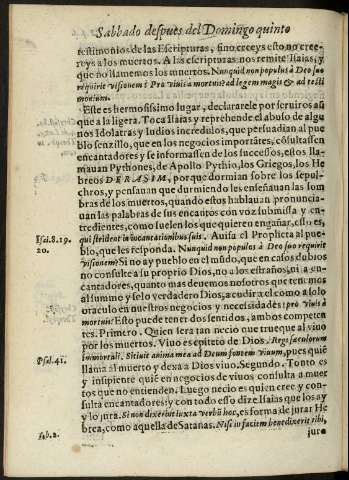 Sabbado despues del Domingo quinto
testimonios de las Escripturas, sino creeys esto no cree-
reys a los muertos. A las escripturas nos remite Isaias, y
que no llamemos los muertos. Nunquid non populus à Deo suo
requirit visionem? Pro viuis a mortuis ad legem magis & ad testi
monium.
Este es hermosissimo lugar, declararele por seruiros aũ
que a la ligera. Toca Isaias y reprehende el abuso de algu
nos Idolatras y Iudios incredulos, que persuadian al pue
blo senzillo, que en los negocios importãtes, cõsultassen
encantadores y se informassen de los successos, estos lla-
mauan Pythones, de Apollo Pythio, los Griegos, los He
breos DERASIM, porque dormian sobre los sepul-
chros, y pensauan que durmiendo les enseñauan las som
bras de los muertos, quando estos hablauan pronuncia-
uan las palabras de sus encantos con voz submissa y en-
tredientes, como suelen los que quieren engañar, esto es,
Isai. 8. 19.
20.
qui strident in incantationibus suis. Auisa el Propheta al pue-
blo, que les responda. Nunquid non populus à Deo suo requirit
visionem? Si no ay pueblo en el mũdo, que en casos dubios
no consulte a su proprio Dios, no a los estraños, ni a en-
cantadores, quanto mas deuemos nosotros que tenemos
al summo y solo verdadero Dios, acudir a el como a solo
oraculo en nuestros negocios y necessidades: pro viuis à
mortuis? Esto puede tener dos sentidos, ambos competen
tes. Primero. Quien sera tan necio que trueque al viuo
por los muertos. Viuo es epiteto de Dios. Regi sæculorum
Psal. 41.
immortali. Sitiuit anima mea ad Deum fontem viuum, pues quiẽ
llama al muerto y dexa a Dios viuo. Segundo. Tonto es
y insipiente quiẽ en negocios de viuos consulta a muer
tos que no entienden. Luego necio es quien cree y con-
sulta encantadores: y con todo esso dize Isaias que los ay
y lo jura. Si non dixerint iuxta verbũ hoc, es forma de jurar He
Iob. 2.
brea, como aquella de Satanas. Nisi in faciem benedixerit tibi,
jura